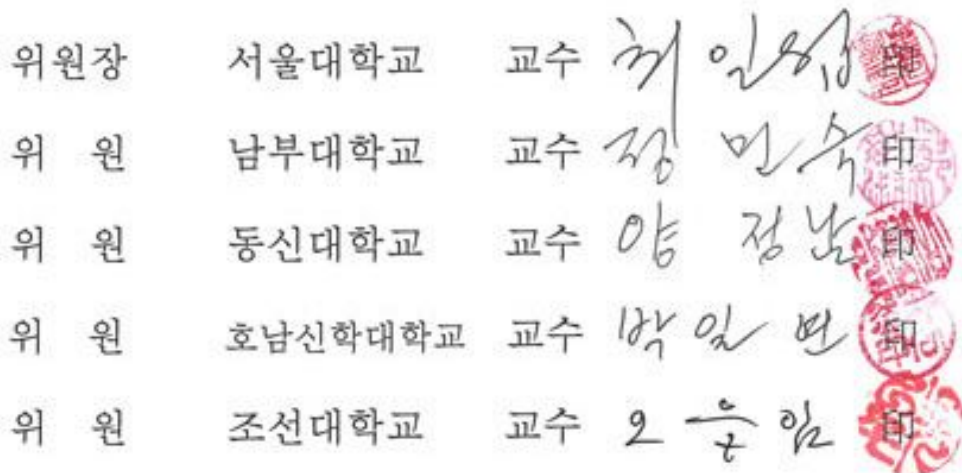 위원장 서울대학교 교수 최일섭 印
위 원 남부대학교 교수 정민숙 印
위 원 동신대학교 교수 양정남 印
위 원 호남신학대학교 교수 박일연 印
위 원 조선대학교 교수 오 印